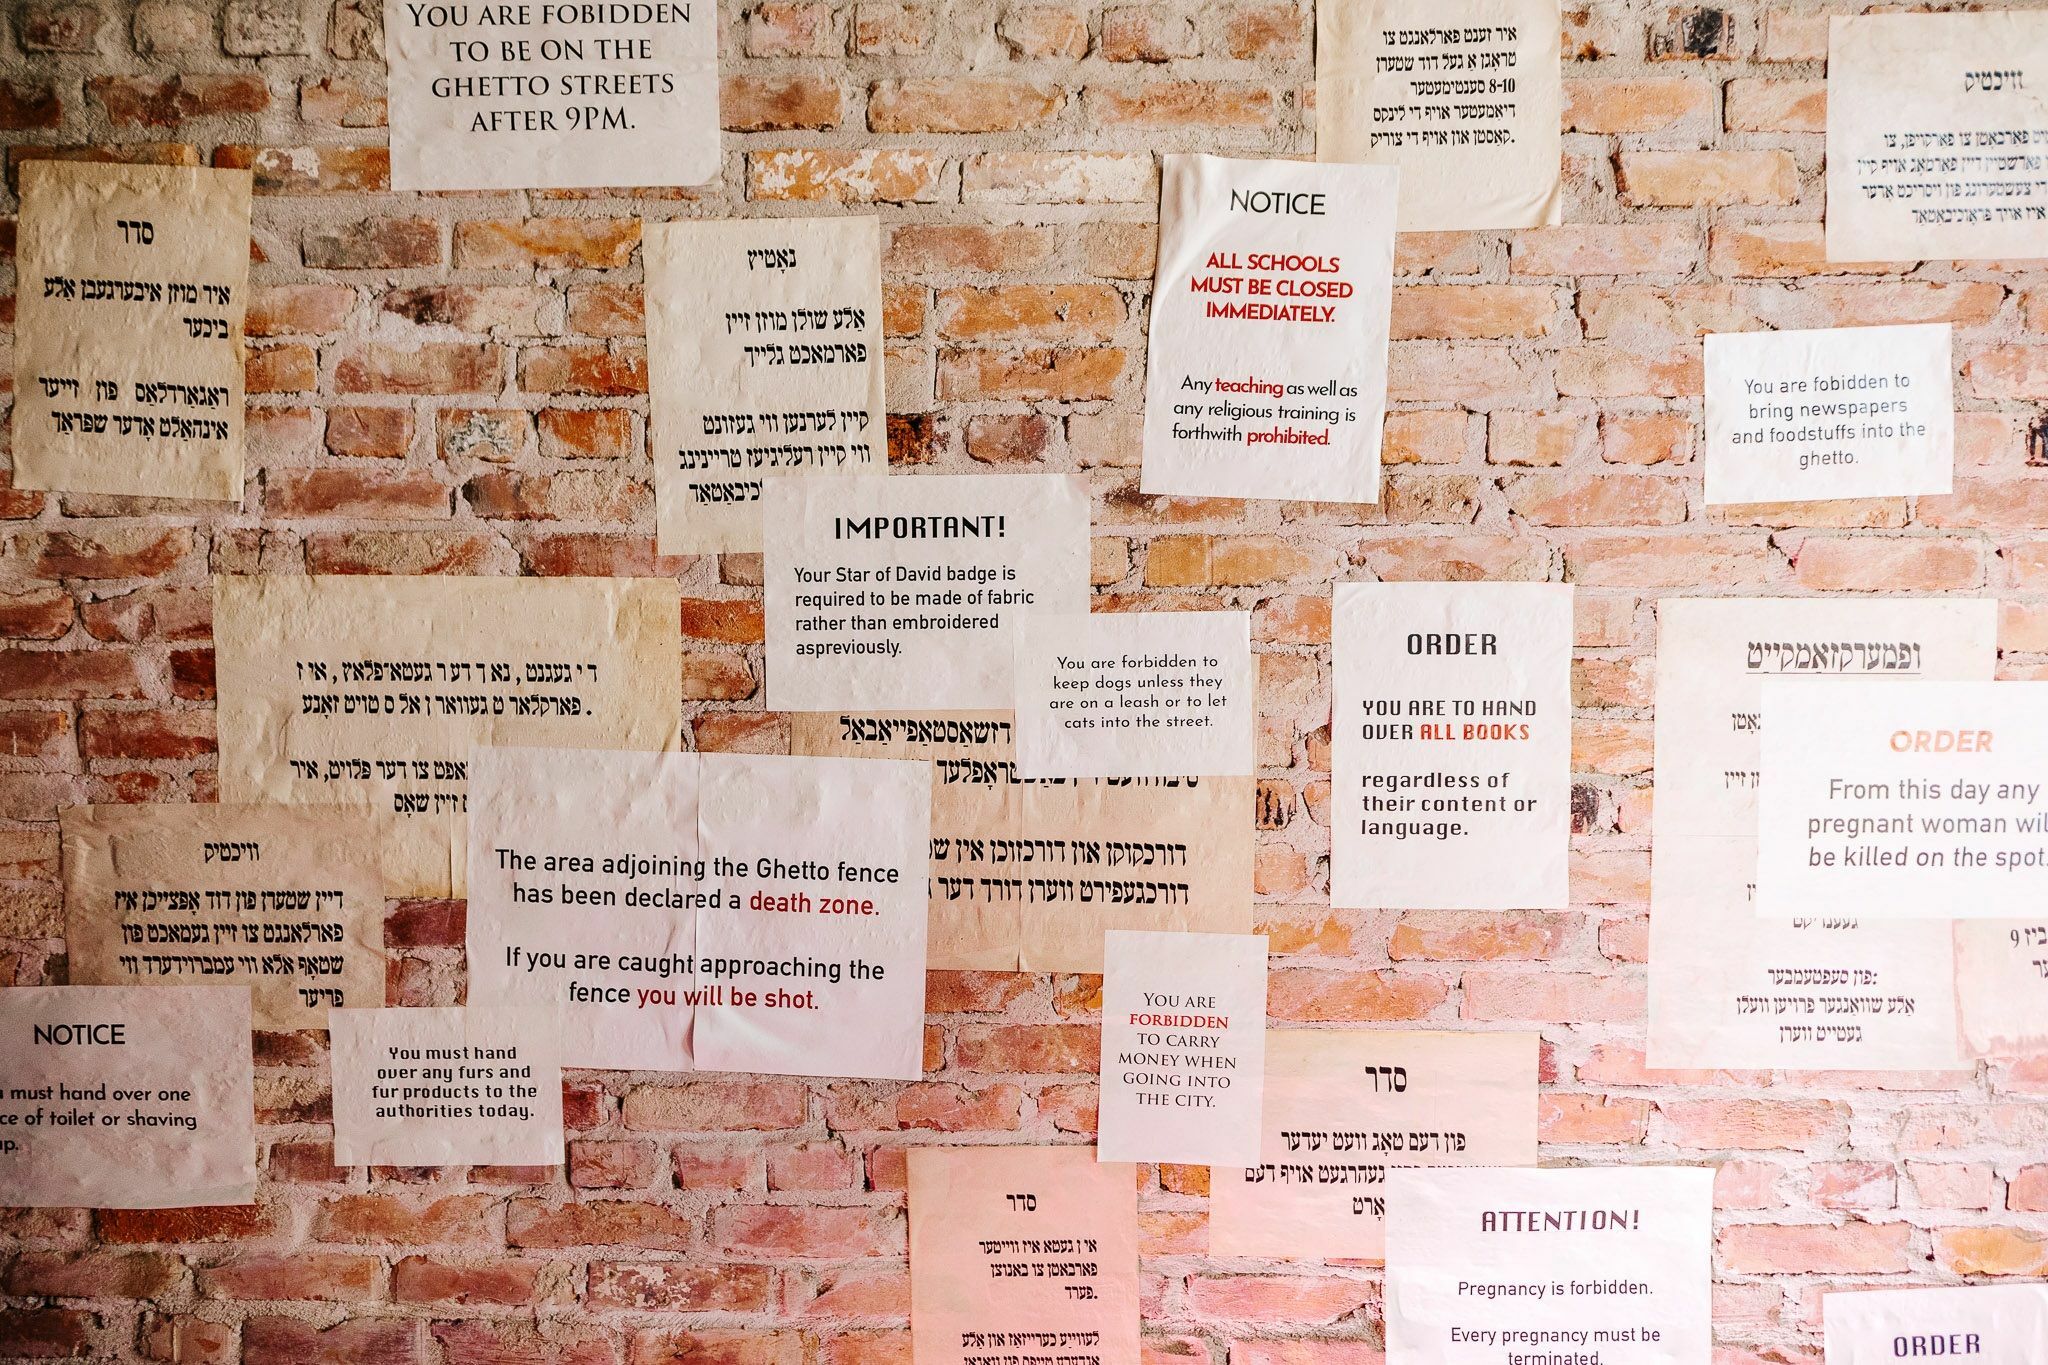 YOU ARE FOBIDDEN
TO BE ON THE
GHETTO STREETS
AFTER 9PM.
איר זענט פארלאנגט צו
טראָגן א געל דוד שטערן
8-10 סענטימעטער
דיאַמעטער אויף די לינקס
קאַסטן און אויף די צוריק.
וויכטיק
סדר
איר מוזן איבערגעבן אַלע
ביכער
ראַגאַרדלאַס פון זייער
אינהאַלט אָדער שפּראַך
נאָטיץ
אַלע שולן מוזן זיין
פארמאכט גלייך
קיין לערנען ווי געזונט
ווי קיין רעליגיעז טריינינג
NOTICE
ALL SCHOOLS
MUST BE CLOSED
IMMEDIATELY.
Any teaching as well as
any religious training is
forthwith prohibited.
You are fobidden to
bring newspapers
and foodstuffs into the
ghetto.
IMPORTANT!
Your Star of David badge is
required to be made of fabric
rather than embroidered
aspreviously.
You are forbidden to
keep dogs unless they
are on a leash or to let
cats into the street.
ORDER
YOU ARE TO HAND
OVER ALL BOOKS
regardless of
their content or
language.
ופמערקזאַמקייַט
ORDER
From this day any
pregnant woman
be killed on the spot.
פון סעפטעמבער:
אַלע שוואַנגער פרויען וועלן
געטייט ווערן
די געגנט, נאך דער געטאּ־פּלאַץ, איז
פארקלארט געווארן אלס טויט זאָנע.
צו דער פּלויט, איר
זיין שאָס
The area adjoining the Ghetto fence
has been declared a death zone.
If you are caught approaching the
fence you will be shot.
דזשאַסטאַפייאַבאַל
דורכקוקן און דורכזוכן אין
דורכגעפירט ווערן דורך דער
וויכטיק
דיין שטערן פון דוד אָפּצייכן איז
פארלאנגט צו זיין געמאכט פון
שטאָף אלא ווי עמברוידערד ווי
פריער
NOTICE
must hand over one
of toilet or shaving
You must hand
over any furs and
fur products to the
authorities today.
YOU ARE
FORBIDDEN
TO CARRY
MONEY WHEN
GOING INTO
THE CITY.
סדר
פון דעם טאָג וועט יעדער
געהרגעט אויף דעם
סדר
אין געטא איז ווייטער
פארבאטן צו באנוצן
פערד.
ATTENTION!
Pregnancy is forbidden.
Every pregnancy must be
terminated.
ORDER